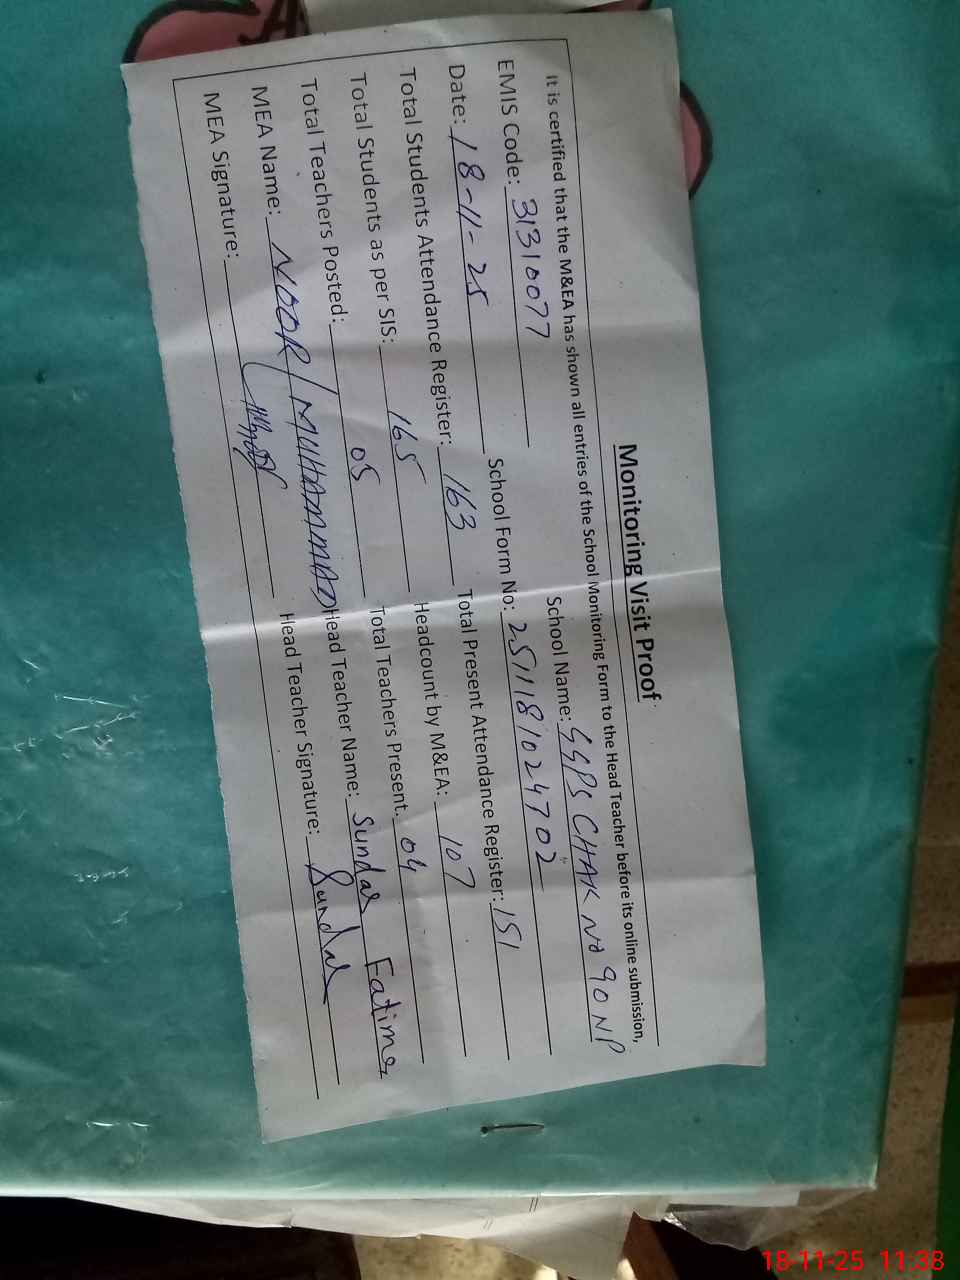 Monitoring Visit Proof
It is certified that the M&EA has shown all entries of the School Monitoring Form to the Head Teacher before its online submission,
EMIS Code: 31310077 School Name: GGPS CHAK No 90 NP
Date: 18-11-25 School Form No: 2511181024702
Total Students Attendance Register: 163 Total Present Attendance Register: 151
Total Students as per SIS: 165 Headcount by M&EA: 107
Total Teachers Posted: 05 Total Teachers Present. 04
MEA Name: NOOR MUHAMMAD Head Teacher Name: Sundas Fatima
MEA Signature: Head Teacher Signature: Sundas
18-11-25 11:38